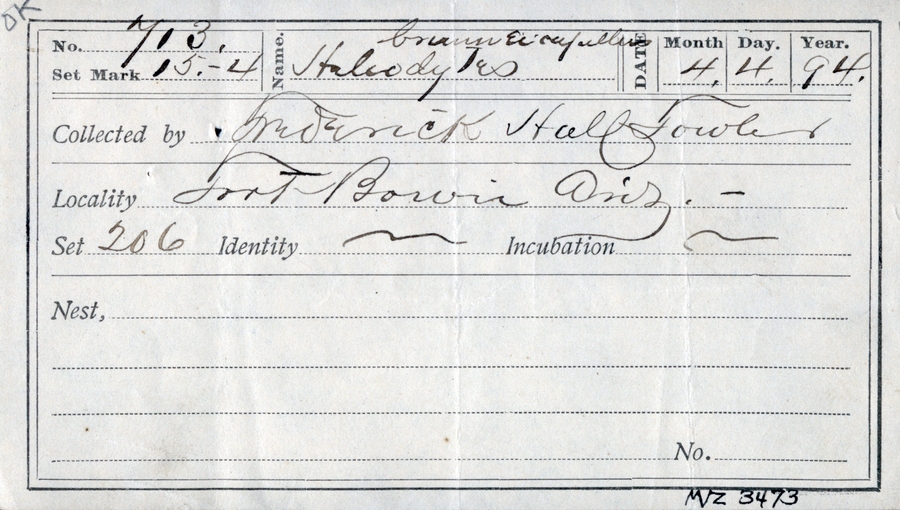 OK
No. 713. Name. brunneicapillus DATE Month Day. Year.
Set Mark 15.-4 Heleodytes 4. 4. 94.
Collected by Frederick Hall Fowler
Locality Fort Bowie Ariz. -
Set 206 Identity ~ Incubation ~
Nest,
No.
MVZ 3473